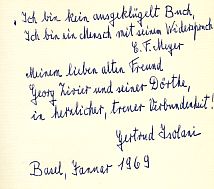 „Ich bin kein ausgeklügelt Buch,
Ich bin ein Mensch mit seinem Widerspruch
C. F. Meyer
Meinem lieben alten Freund
Georg Zivier und seiner Dörthe,
in herzlicher, treuer Verbundenheit!
Gertrud Isolani
Basel, Janner 1969